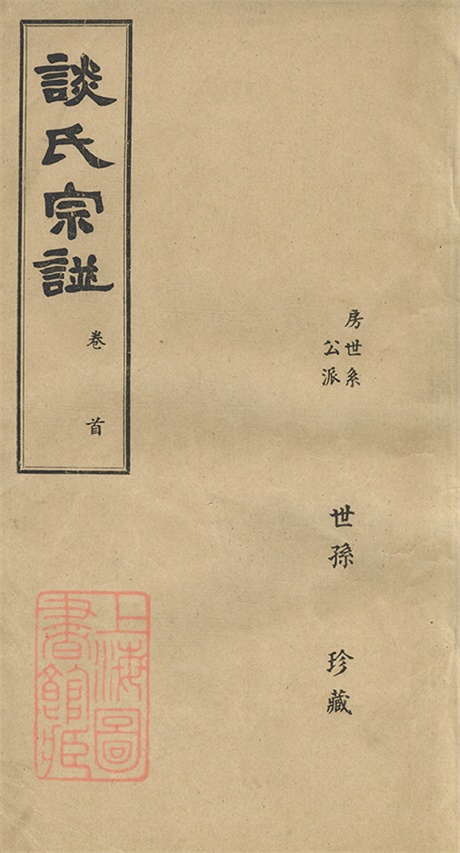 談氏宗譜
卷首
房世系
公派
世孫
珍藏
上海圖
書館藏